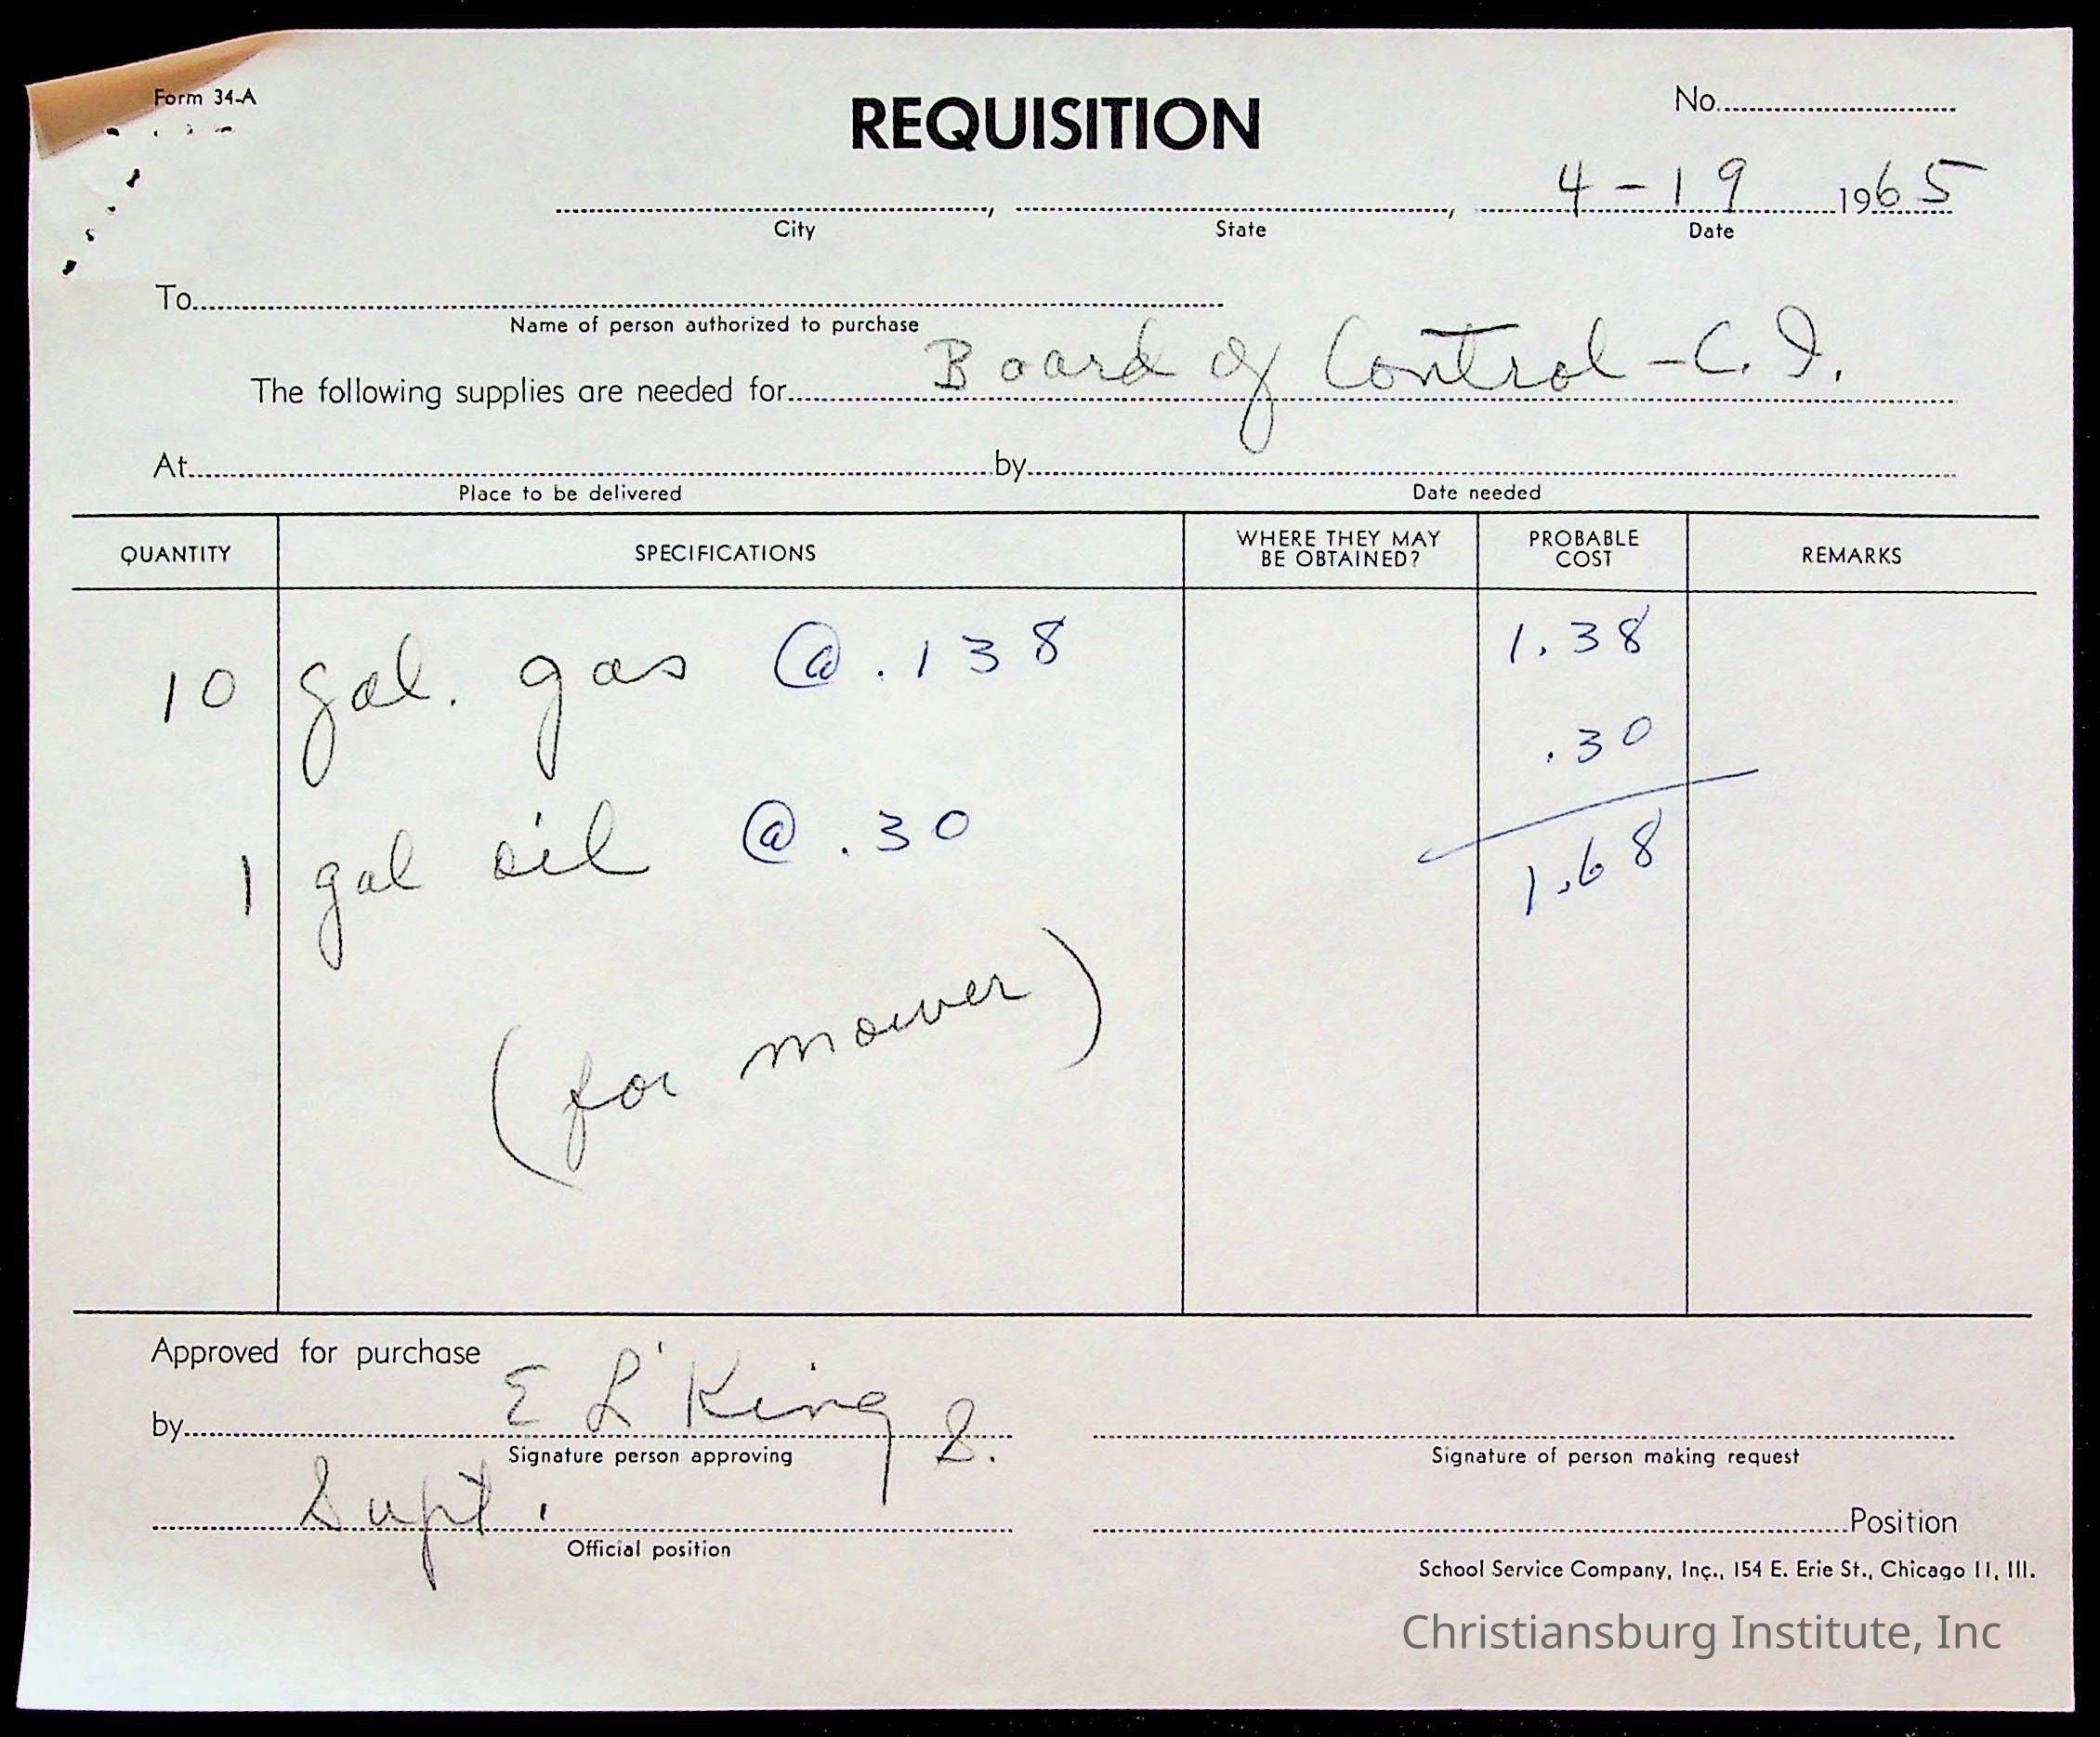 Form 34-A
REQUISITION
No.
4-19 1965
City, State, Date
To
Name of person authorized to purchase
The following supplies are needed for Board of Control-C.I.
At by
Place to be delivered Date needed
QUANTITY SPECIFICATIONS WHERE THEY MAY BE OBTAINED? PROBABLE COST REMARKS
10 gal. gas @ .138 1.38
.30
1 gal oil @ .30 1.68
(for mower)
Approved for purchase
by E L King S.
Signature person approving Signature of person making request
Supt. Position
Official position
School Service Company, Inc., 154 E. Erie St., Chicago 11, Ill.
Christiansburg Institute, Inc